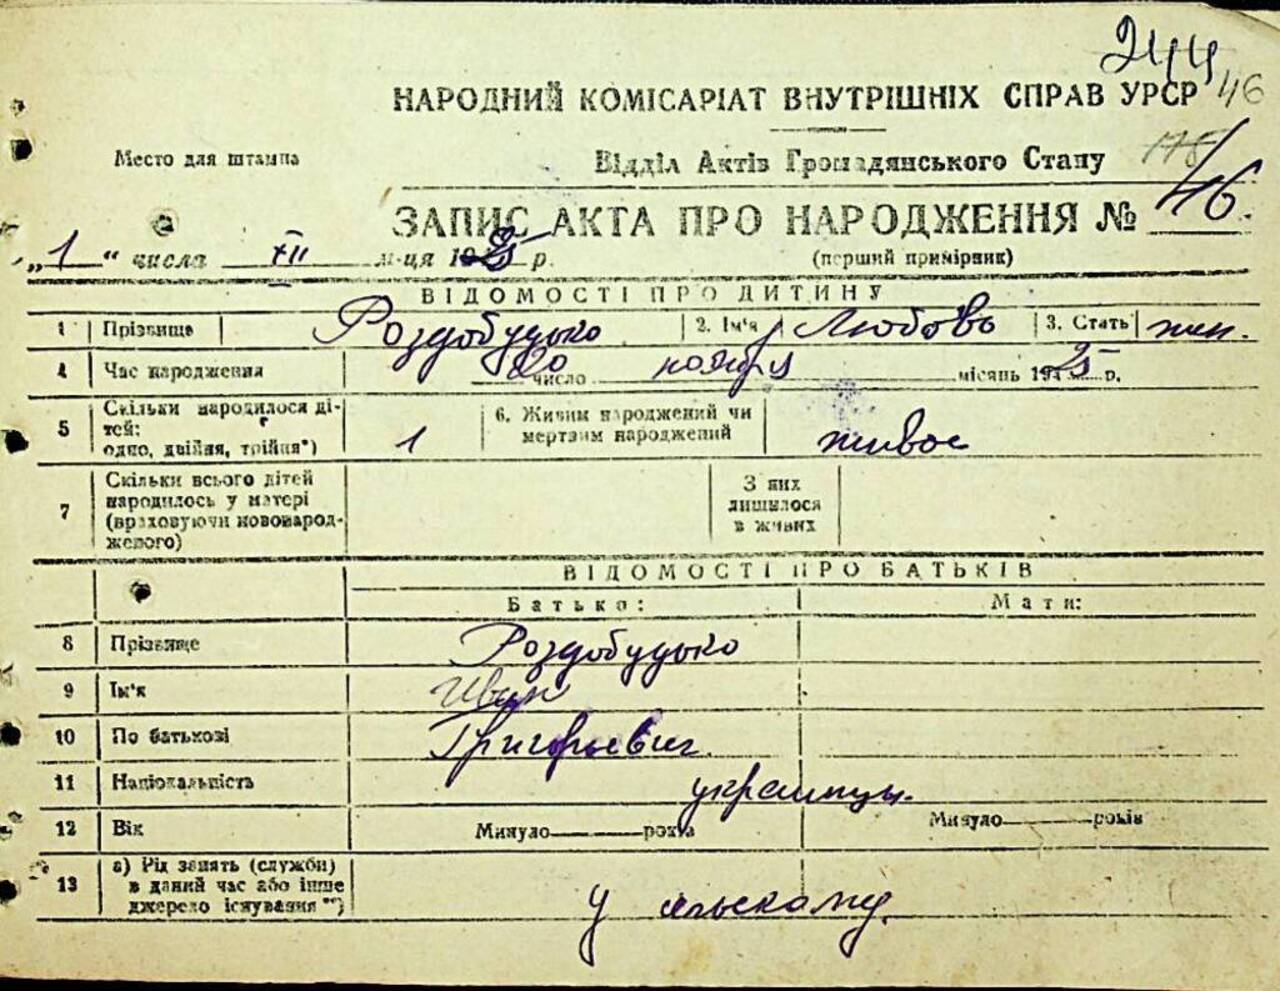 244
НАРОДНИЙ КОМІСАРІАТ ВНУТРІШНІХ СПРАВ УРСР 46
Место для штампа
Відділ Актів Громадянського Стану 178
ЗАПИС АКТА ПРО НАРОДЖЕННЯ № 46.
„1“ числа XII м-ця 1925 р. (перший примірник)
ВІДОМОСТІ ПРО ДИТИНУ
1 Прізвище Роздобудько 2. Ім'я Любовь 3. Стать жен.
4 Час народження 20 число ноября місяць 1925 р.
5 Скільки народилося ді-
тей:
одно, двійня, трійня*) 1
6. Живим народжений чи
мертвим народжений живое
7 Скільки всього дітей
народилось у матері
(враховуючи новонарод-
женого)
З них
лишилося
в живих
ВІДОМОСТІ ПРО БАТЬКІВ
Батько: Мати:
8 Прізвище Роздобудько
9 Ім'я Иван
10 По батькові Григорьевич.
11 Національність украинцы.
12 Вік Минуло років Минуло років
13 а) Рід занять (служби)
в даний час або інше
джерело існування **) У